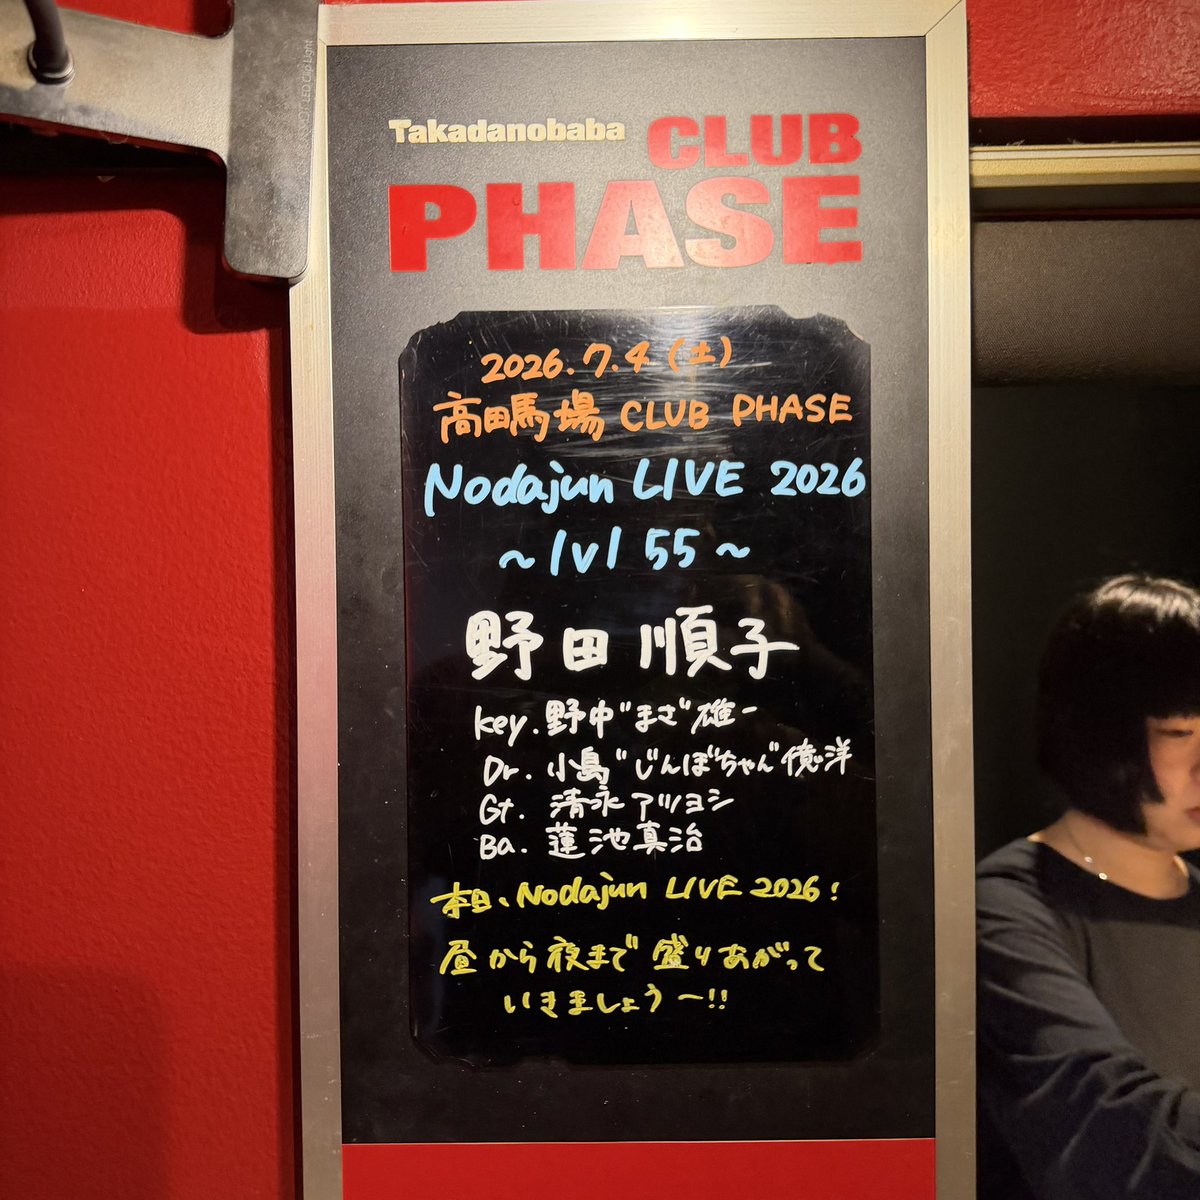 Takadanobaba CLUB
PHASE
2026.7.4(土)
高田馬場 CLUB PHASE
Nodajun LIVE 2026
~lvl 55~
野田順子
Key.野中"まさ"雄一
Dr.小島"じんぼちゃん"億洋
Gt.清永アツヨシ
Ba.蓮池真治
本日、Nodajun LIVE 2026!
昼から夜まで盛りあがって
いきましょうー!!
LED Clip Light